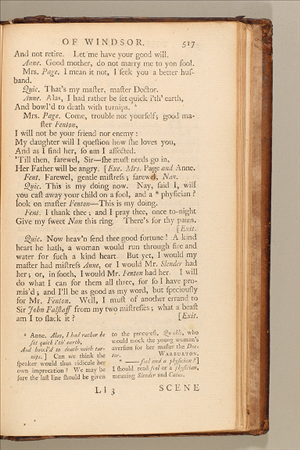 OF WINDSOR. 517
And not retire. Let me have your good will.
Anne. Good mother, do not marry me to yon fool.
Mrs. Page. I mean it not, I seek you a better hus-
band.
Quic. That's my master, master Doctor.
Anne. Alas, I had rather be set quick i'th' earth,
And bowl'd to death with turnips. *
Mrs. Page. Come, trouble not yourself, good ma-
ster Fenton,
I will not be your friend nor enemy:
My daughter will I question how she loves you,
And as I find her, so am I affected.
'Till then, farewel, Sir—she must needs go in,
Her Father will be angry. [Exe. Mrs. Page and Anne.
Fent. Farewel, gentle mistress; farewel, Nan.
Quic. This is my doing now. Nay, said I, will
you cast away your child on a fool, and a * physician?
look on master Fenton—This is my doing.
Fent. I thank thee; and I pray thee, once to-night
Give my sweet Nan this ring. There's for thy pains.
[Exit.
Quic. Now heav'n send thee good fortune! A kind
heart he hath, a woman would run through fire and
water for such a kind heart. But yet, I would my
master had mistress Anne, or I would Mr. Slender had
her; or, in sooth, I would Mr. Fenton had her. I will
do what I can for them all three, for so I have pro-
mis'd; and I'll be as good as my word, but speciously
for Mr. Fenton. Well, I must of another errand to
Sir John Falstaff from my two mistresses; what a beast
am I to slack it?
[Exit.
* Anne. Alas, I had rather be
set quick i'th' earth,
And bowl'd to death with tur-
nips.] Can we think the
speaker would thus ridicule her
own imprecation? We may be
sure the last line should be given
to the procuress, Quickly, who
would mock the young woman's
aversion for her master the Doc-
tor. WARBURTON.
* —fool and a physician?]
I should read fool or a physician,
meaning Slender and Caius.
L l 3 SCENE